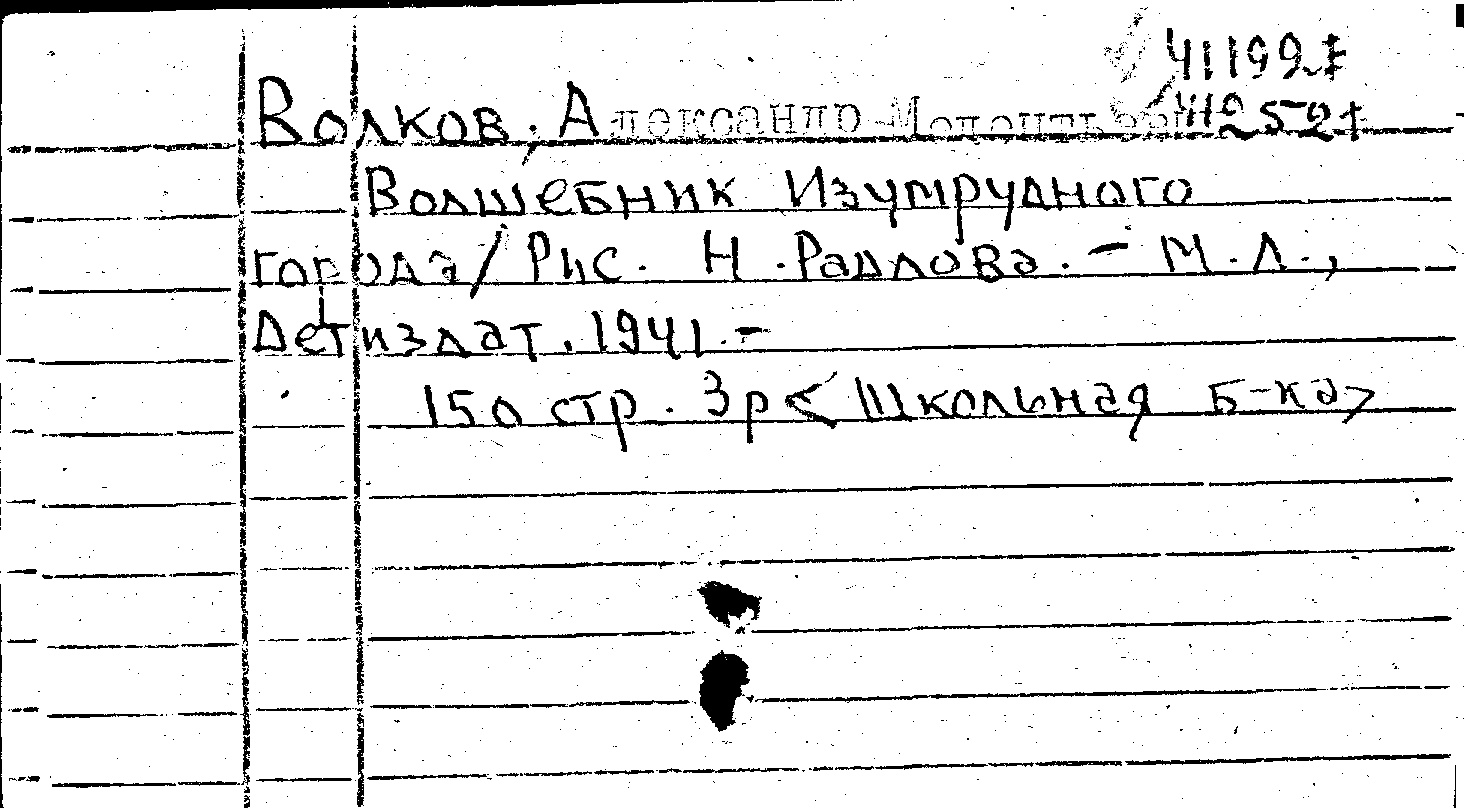 41199
Волков, Александр
Волшебник Изумрудного
города / Рис. Н. Радлова. – М. Л.,
Детиздат. 1941. –
150 стр. 3р < Школьная б-ка >